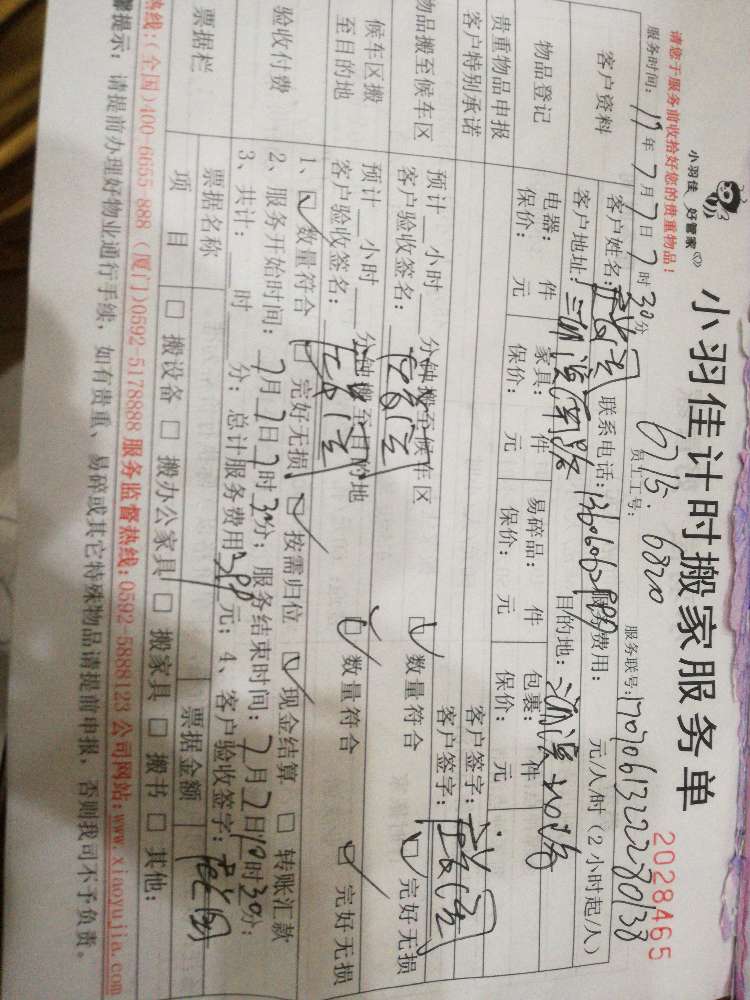 小羽佳计时搬家服务单
2028465
小羽佳 好管家
请您于服务前收拾好您的贵重物品！
6715. 6820
服务时间：17年7月7日7时30分 员工工号： 服务联号：
客户资料 客户姓名： 联系电话： 服务费用： 元/人/时（2小时起/人）
客户地址： 目的地：
物品登记 电器： 件 家具： 件 易碎品： 件 包裹： 件
保价： 元 保价： 元 保价： 元 保价： 元
贵重物品申报 客户签字：
客户特别承诺 客户签字：
物品搬至候车区 预计__小时__分钟搬至候车区 ☑ 数量符合 ☑ 完好无损
客户验收签名：
候车区搬至目的地 预计__小时__分钟搬至目的地 ☑ 数量符合 ☑ 完好无损
客户验收签名：
验收付费 1、☑ 数量符合 ☑ 完好无损 ☑ 按需归位 ☑ 现金结算 □ 转账汇款
2、服务开始时间：7月7日7时30分；服务结束时间：7月7日10时30分；
3、共计： 时 分；总计服务费用 元；4、客户验收签字：
票据栏 票据名称 票据金额
项 目 □ 搬设备 □ 搬办公家具 □ 搬家具 □ 搬书 □ 其他：
热线：(全国)400-6655-888 (厦门)0592-5178888 服务监督热线：0592-5888123 公司网站：www.xiaoyujia.com
馨提示：请提前办理好物业通行手续，如有贵重、易碎或其它特殊物品请提前申报，否则我司不予负责。